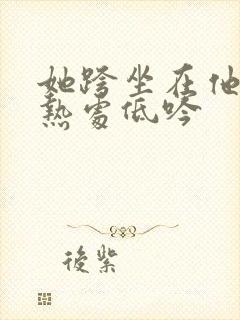 她跨坐在他
熱處低吟
後紫